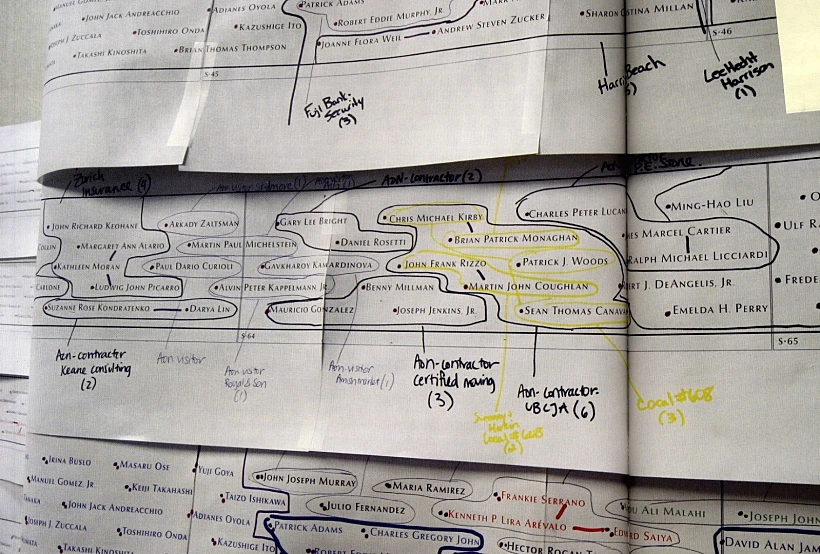 PATRICK ADAMS
JOHN JACK ANDREACCHIO
ADIANES OYOLA
ROBERT EDDIE MURPHY, JR.
SHARON
TINA MILLAN
JOSEPH J. ZUCCALA
TOSHIHIRO ONDA
KAZUSHIGE ITO
ANDREW STEVEN ZUCKER
TAKASHI KINOSHITA
BRIAN THOMAS THOMPSON
JOANNE FLORA WEIL
S-45
S-46
Fuji Bank:
Security
(3)
Harris Beach
LeeHecht
Harrison
(1)
Zurich
Insurance (9)
Aon-contractor (2)
JOHN RICHARD KEOHANE
ARKADY ZALTSMAN
GARY LEE BRIGHT
CHRIS MICHAEL KIRBY
CHARLES PETER LUCAN
MING-HAO LIU
COLLIN
MARGARET ANN ALARIO
MARTIN PAUL MICHELSTEIN
DANIEL ROSETTI
BRIAN PATRICK MONAGHAN
MES MARCEL CARTIER
ULF R
KATHLEEN MORAN
PAUL DARIO CURIOLI
GAVKHAROY KAMARDINOVA
JOHN FRANK RIZZO
PATRICK J. WOODS
RALPH MICHAEL LICCIARDI
CARLONI
LUDWIG JOHN PICARRO
ALVIN PETER KAPPELMANN JR
BENNY MILLMAN
MARTIN JOHN COUGHLAN
RT J. DEANGELIS, JR.
FREDE
SUZANNE ROSE KONDRATENKO
DARYA LIN
MAURICIO GONZALEZ
JOSEPH JENKINS, JR.
SEAN THOMAS CANAVA
EMELDA H. PERRY
S-64
S-65
Aon-contractor
Keane consulting
(2)
Aon visitor
Aon-visitor
Royal & Son
(1)
Aon-visitor
(1)
Aon-contractor
certified moving
(3)
Aon-contractor-
UBCJA (6)
Local #608
(2)
Local #608
(3)
IRINA BUSLO
MASARU OSE
YUJI GOYA
JOHN JOSEPH MURRAY
MARIA RAMIREZ
FRANKIE SERRANO
MANUEL GOMEZ, JR.
KEIJI TAKAHASHI
TAIZO ISHIKAWA
JULIO FERNANDEZ
YOU ALI MALAHI
TANAKA
JOHN JACK ANDREACCHIO
KENNETH P. LIRA ARÉVALO
EDWARD SAIYA
JOSEPH JOHN
JOSEPH J. ZUCCALA
TOSHIHIRO ONDA
ADIANES OYOLA
PATRICK ADAMS
CHARLES GREGORY JOHN
DAVID ALAN JAM
TAKASHI KINOSHITA
KAZUSHIGE ITO
ROBERT EDDIE
HECTOR ROGAN